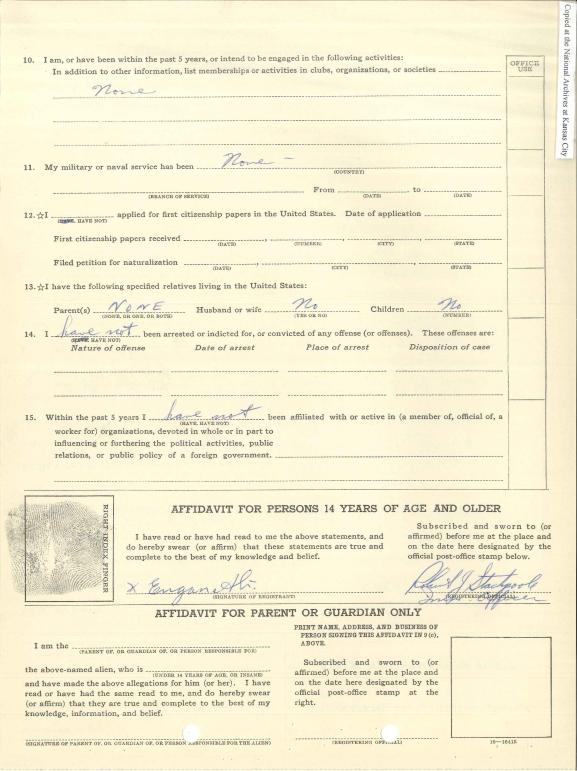 Copied at the National Archives at Kansas City
OFFICE USE
10. I am, or have been within the past 5 years, or intend to be engaged in the following activities:
In addition to other information, list memberships or activities in clubs, organizations, or societies
None
11. My military or naval service has been None -
(COUNTRY)
From to
(BRANCH OF SERVICE) (DATE) (DATE)
12.☆I applied for first citizenship papers in the United States. Date of application
(HAVE, HAVE NOT)
First citizenship papers received , , ,
(DATE) (NUMBER) (CITY) (STATE)
Filed petition for naturalization , ,
(DATE) (CITY) (STATE)
13.☆I have the following specified relatives living in the United States:
Parent(s) NONE Husband or wife No Children No
(NONE, OR ONE, OR BOTH) (YES OR NO) (NUMBER)
14. I have not been arrested or indicted for, or convicted of any offense (or offenses). These offenses are:
(HAVE, HAVE NOT)
Nature of offense Date of arrest Place of arrest Disposition of case
15. Within the past 5 years I have not been affiliated with or active in (a member of, official of, a
(HAVE, HAVE NOT)
worker for) organizations, devoted in whole or in part to
influencing or furthering the political activities, public
relations, or public policy of a foreign government.
RIGHT INDEX FINGER
AFFIDAVIT FOR PERSONS 14 YEARS OF AGE AND OLDER
I have read or have had read to me the above statements, and
do hereby swear (or affirm) that these statements are true and
complete to the best of my knowledge and belief.
X
(SIGNATURE OF REGISTRANT)
Subscribed and sworn to (or
affirmed) before me at the place and
on the date here designated by the
official post-office stamp below.
(REGISTERING OFFICIAL)
Officer
AFFIDAVIT FOR PARENT OR GUARDIAN ONLY
I am the
(PARENT OF, OR GUARDIAN OF, OR PERSON RESPONSIBLE FOR)
the above-named alien, who is
(UNDER 14 YEARS OF AGE, OR INSANE)
and have made the above allegations for him (or her). I have
read or have had the same read to me, and do hereby swear
(or affirm) that they are true and complete to the best of my
knowledge, information, and belief.
(SIGNATURE OF PARENT OF, OR GUARDIAN OF, OR PERSON RESPONSIBLE FOR THE ALIEN)
PRINT NAME, ADDRESS, AND BUSINESS OF
PERSON SIGNING THIS AFFIDAVIT IN 9 (c),
ABOVE.
Subscribed and sworn to (or
affirmed) before me at the place and
on the date here designated by the
official post-office stamp at the
right.
(REGISTERING OFFICIAL)
16—16415